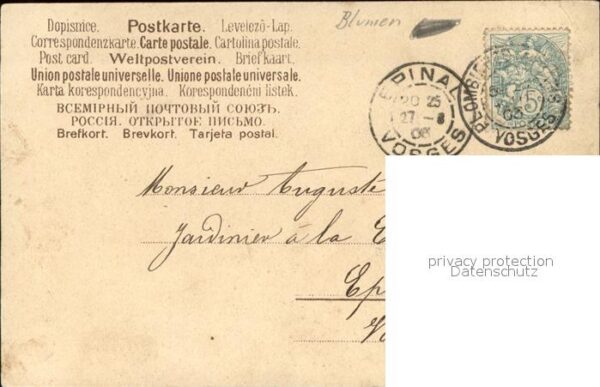 Dopisnice. Postkarte. Levelező-Lap.
Correspondenzkarte. Carte postale. Cartolina postale.
Post card. Weltpostverein. Briefkaart.
Union postale universelle. Unione postale universale.
Karta korespondencyjna. Korespondenční listek.
ВСЕМІРНЫЙ ПОЧТОВЫЙ СОЮЗЪ.
РОССІЯ. ОТКРЫТОЕ ПИСЬМО.
Brefkort. Brevkort. Tarjeta postal.
Blumen
EPINAL
20 25
27 - 8
VOSGES
VOSGES
5
Monsieur Auguste
Jardinier à la
Ep
privacy protection
Datenschutz